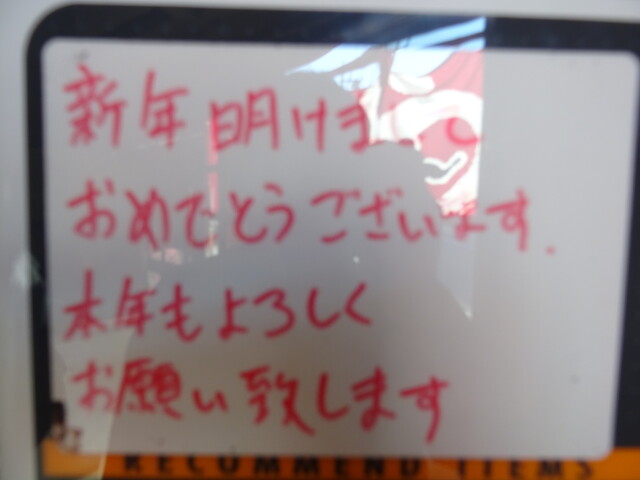 新年明けまして
おめでとうございます.
本年もよろしく
お願い致します
RECOMMEND ITEMS